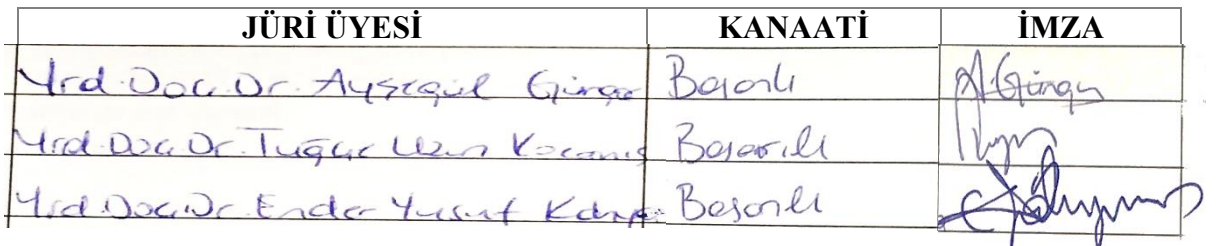 JÜRİ ÜYESİ KANAATİ İMZA
Yrd. Doç. Dr. Ayşegül Başarılı A.
Yrd. Doç. Dr. Tuğçe Uzun Başarılı
Yrd. Doç. Dr. Ender Yusuf Başarılı